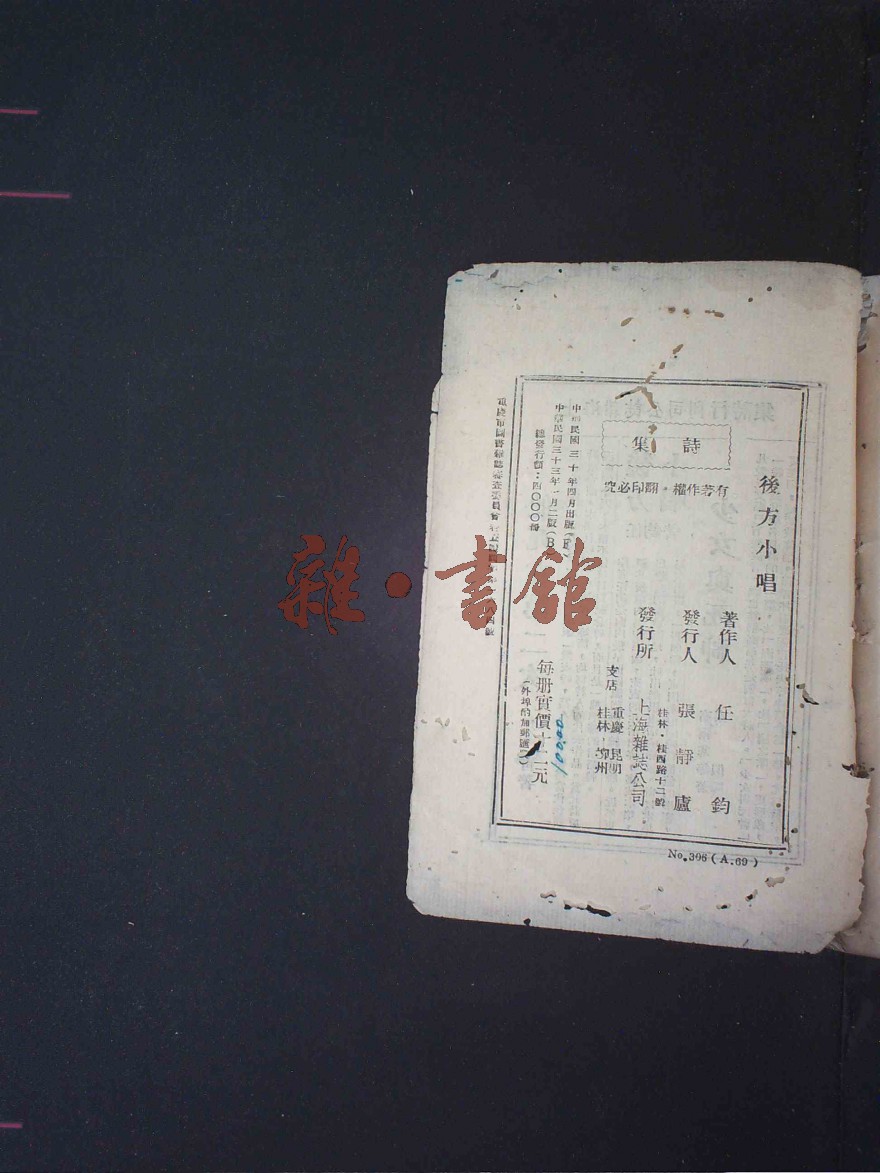 後方小唱
著作人 任鈞
發行人 張靜廬
發行所 上海雜誌公司
桂林·桂西路十二號
支店 重慶 昆明
桂林 柳州
詩集
有著作權·翻印必究
中華民國三十年四月出版
中華民國三十三年一月二版(B
總發行額:四〇〇〇冊
每册實價十二元
(外埠酌加郵匯
100.00
重慶市圖書雜誌審查委員會
號
No.306(A.69)
雜·書館